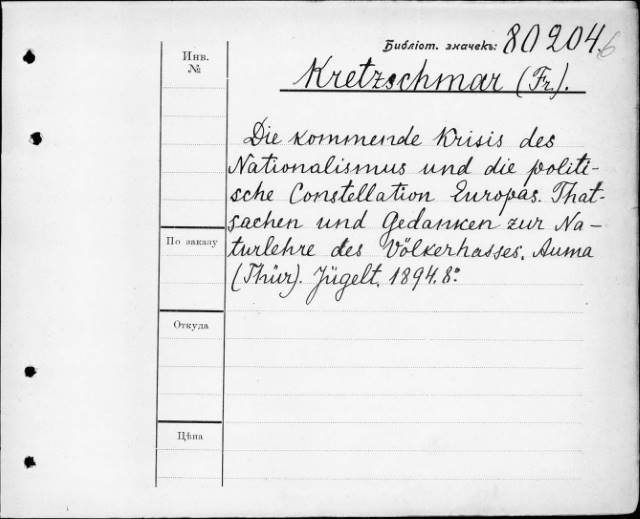 Библіот. значекъ: 80204
6
Инв.
№
Kretzschmar (Fr.).
Die kommende Krisis des
Nationalismus und die politi-
sche Constellation Europas. That-
sachen und Gedanken zur Na-
turlehre des Völkerhasses. Auma
(Thür). Jügelt, 1894. 8°.
По заказу
Откуда
Цѣна